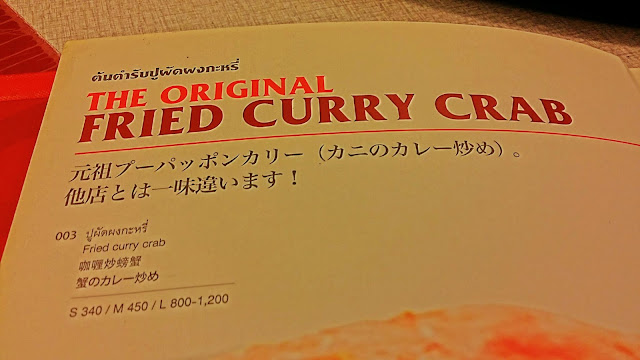 ต้นตำรับปูผัดผงกะหรี่
THE ORIGINAL
FRIED CURRY CRAB
元祖プーパッポンカリー（カニのカレー炒め）。
他店とは一味違います！
003 ปูผัดผงกะหรี่
Fried curry crab
咖喱炒螃蟹
蟹のカレー炒め
S 340 / M 450 / L 800-1,200